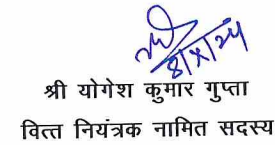 8/x/24
श्री योगेश कुमार गुप्ता
वित्त नियंत्रक नामित सदस्य